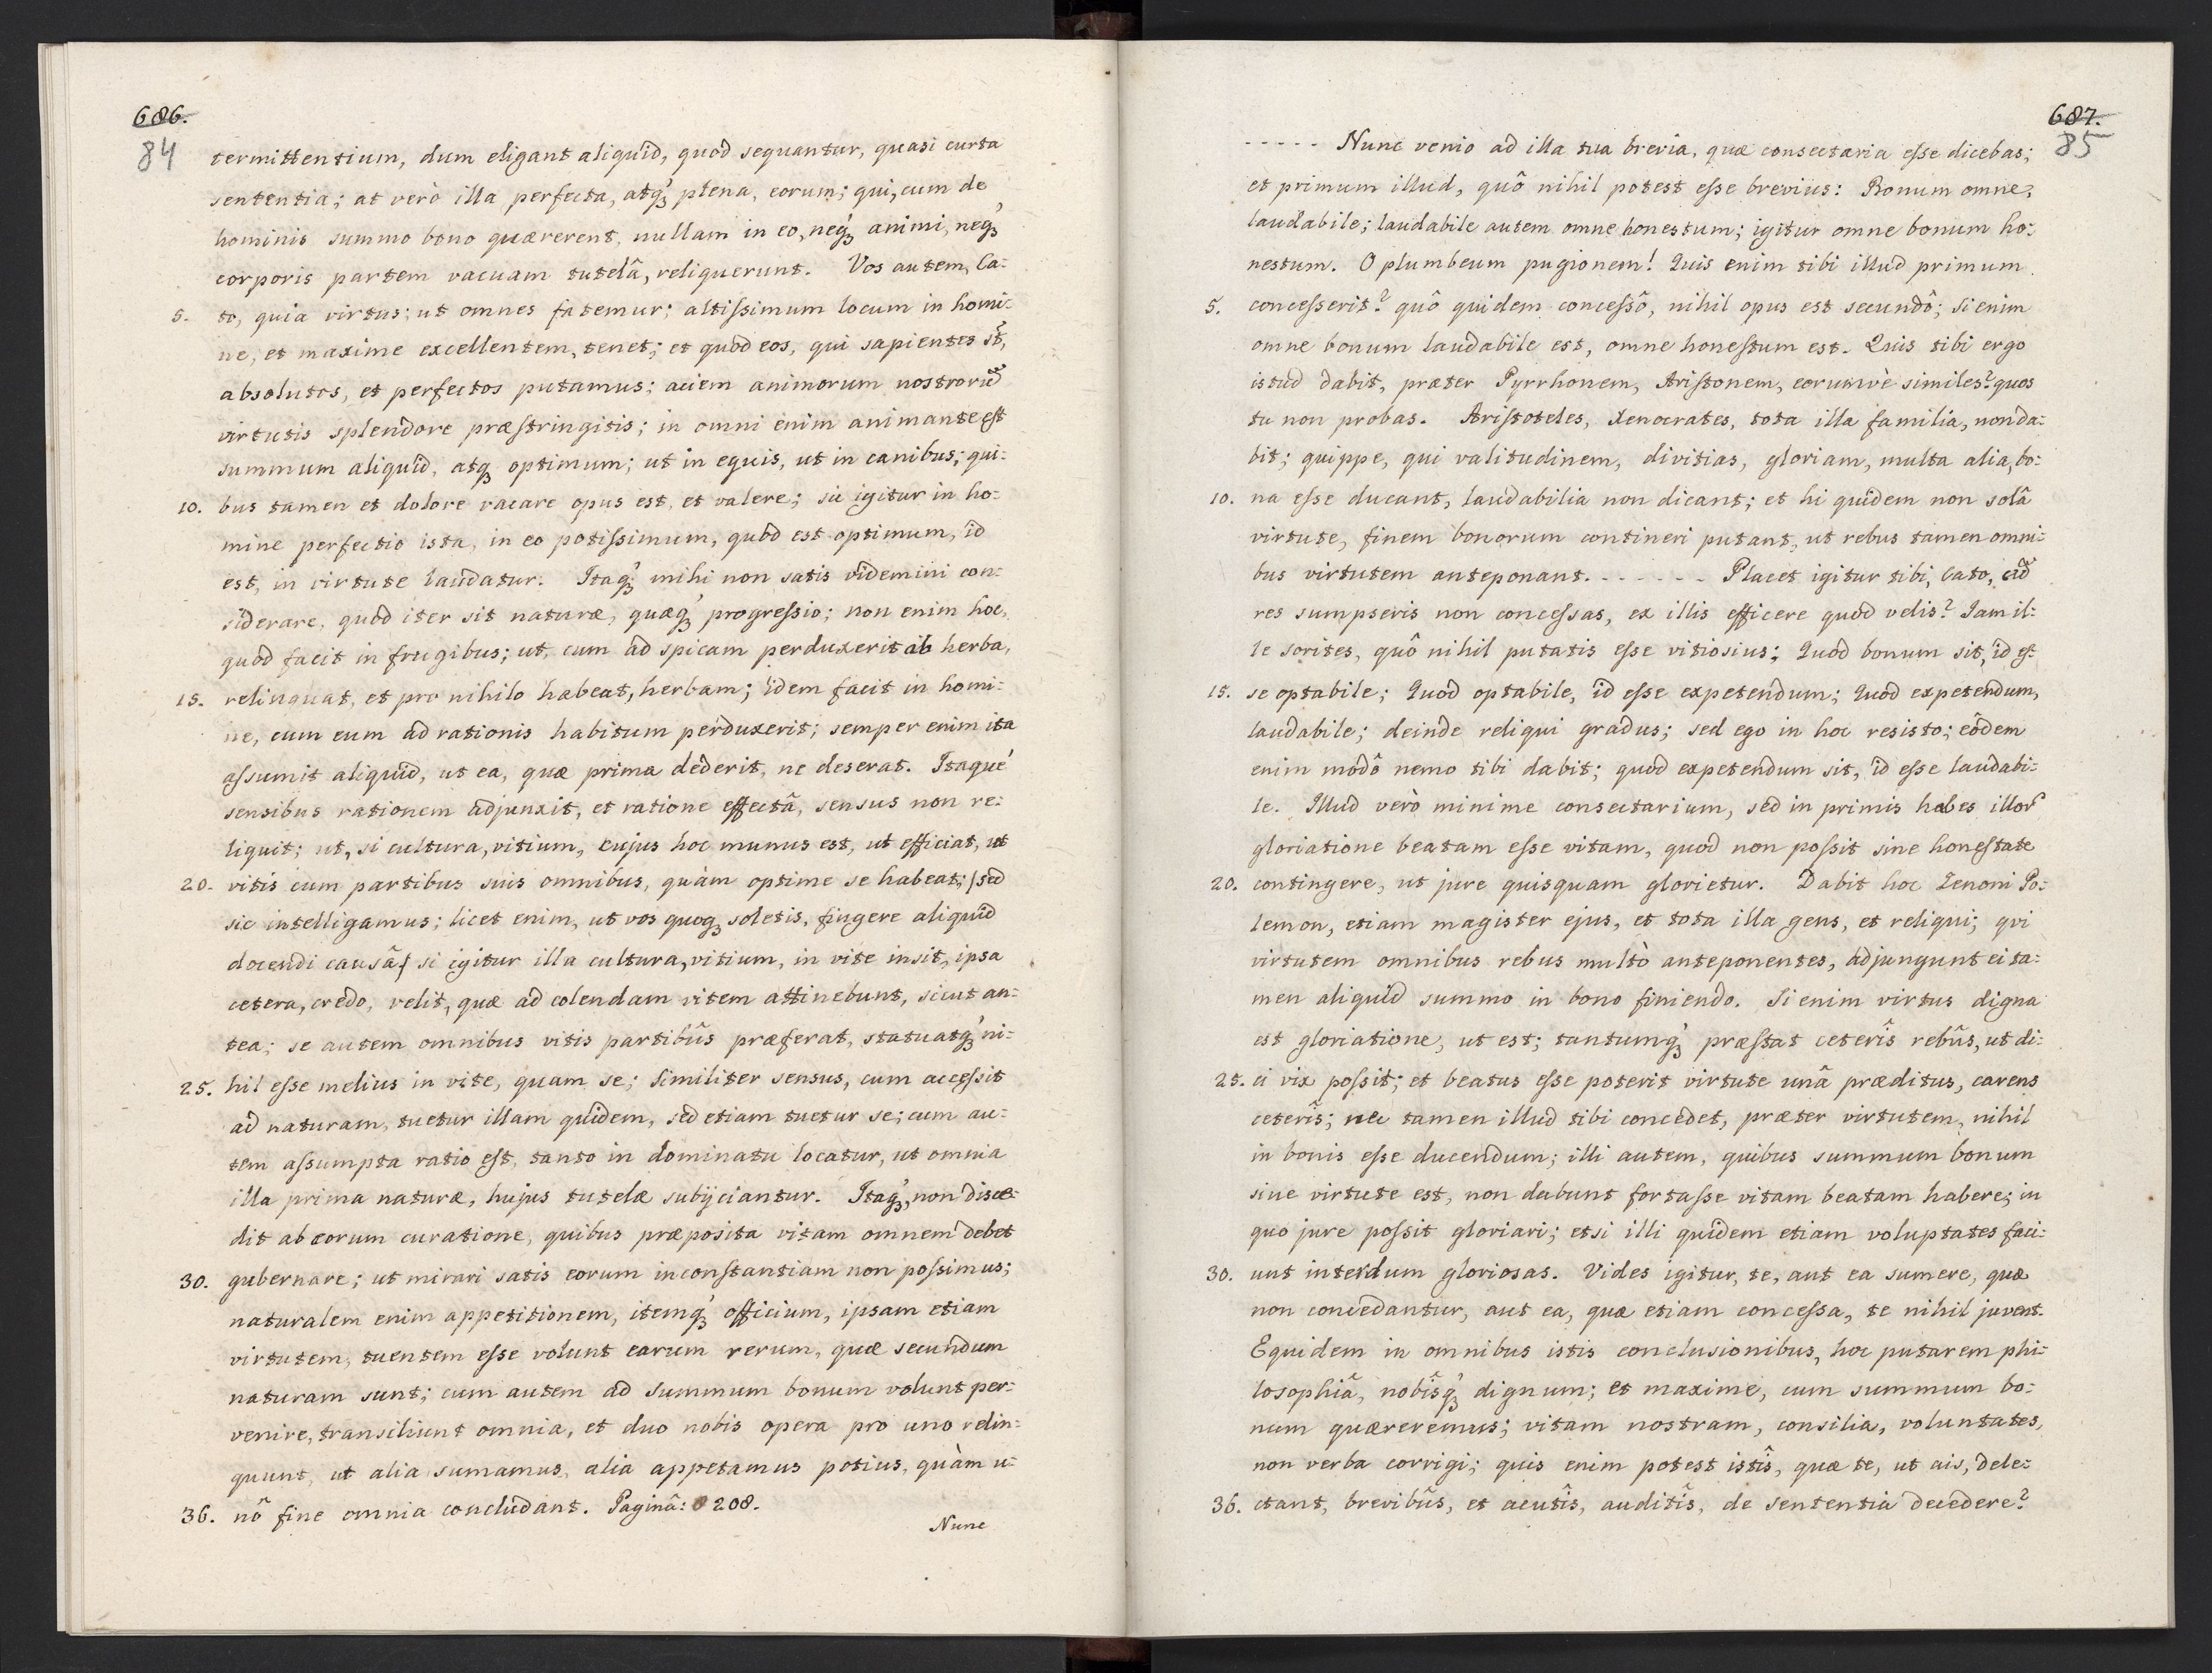 686.
84
termittentium, dum eligant aliquid, quod sequantur, quasi curta
sententia; at verò illa perfecta, atq́ꝫ plena, eorum; qui, cum de
hominis summo bono quærerent, nullam in eo, neq́ꝫ animi, neq́ꝫ
corporis partem vacuam tutelâ, reliquerunt. Vos autem, Ca:
5. to, quia virtus; ut omnes fatemur; altiſsimum locum in homi:
ne, et maxime excellentem, tenet; et quòd eos, qui sapientes st̃,
absolutos, et perfectos putamus; aciem animorum nostrorũ
virtutis splendore præſtringitis; in omni enim animante eſt
summum aliquid, atqꝫ optimum; ut in equis, ut in canibus; qui:
10. bus tamen et dolore vacare opus est, et valere; sic igitur in ho:
mine perfectio ista, in eo potiſsimum, quod est optimum, id
est, in virtute laudatur. Itaq́ꝫ mihi non satis videmini con:
siderare, quòd iter sit naturæ, quæq́ꝫ progreſsio; non enim hoc,
quòd facit in frugibus; ut, cum ad spicam perduxerit ab herba,
15. relinquat, et pro nihilo habeat, herbam; idem facit in homi:
ne, cum eum ad rationis habitum perduxerit; semper enim ita
aſsumit aliquid, ut ea, quæ prima dederit, ne deserat. Itaqué
sensibus rationem adjunxit, et ratione effectâ, sensus non re:
liquit; ut, si cultura, vitium, cujus hoc munus est, ut efficiat, ut
20. vitis cum partibus suis omnibus, quàm optime se habeat; /sed
sic intelligamus; licet enim, ut vos quoqꝫ soletis, fingere aliquid
docendi causâ/ si igitur illa cultura, vitium, in vite insit, ipsa
cetera, credo, velit, quæ ad colendam vitem attinebunt, sicut an:
tea; se autem omnibus vitis partibûs præferat, statuatq́ꝫ ni:
25. hil esse melius in vite, quam se; Similiter sensus, cum acceſsit
ad naturam, tuetur illam quidem, sed etiam tuetur se; cum au:
tem aſsumpta ratio eſt, tanto in dominatu locatur, ut omnia
illa prima naturæ, hujus tutelæ subijciantur. Itaq́ꝫ, non disce:
dit ab eorum curatione, quibus præposita vitam omnem debet
30. gubernare; ut mirari satis eorum inconſtantiam non poſsimus;
naturalem enim appetitionem, itemq́ꝫ officium, ipsam etiam
virtutem, tuentem eſse volunt earum rerum, quæ secundum
naturam sunt; cum autem ad summum bonum volunt per:
venire, transiliunt omnia, et duo nobis opera pro uno relin:
quunt, ut alia sumamus, alia appetamus potius, quàm u:
36. nô fine omnia concludant. Paginâ: 208.
Nunc
687.
85
- - - - - Nunc venio ad illa tua brevia, quæ consectaria eſse dicebas;
et primum illud, quô nihil potest eſse brevius: Bonum omne,
laudabile; laudabile autem omne honestum; igitur omne bonum ho:
nestum. O plumbeum pugionem! Quis enim tibi illud primum
5. conceſserit? quô quidem conceſsô, nihil opus est secundô; si enim
omne bonum laudabile est, omne honeſtum est. Quis tibi ergo
istud dabit, præter Pyrrhonem, Ariſtonem, eorumvè similes? quos
tu non probas. Ariſtoteles, Xenocrates, tota illa familia, non da:
bit; quippe, qui valitudinem, divitias, gloriam, multa alia, bo:
10. na eſse ducant, laudabilia non dicant; et hi quidem non solâ
virtute, finem bonorum contineri putant, ut rebus tamen omni:
bus virtutem anteponant. - - - - - - Placet igitur tibi, Cato, cũ
res sumpseris non conceſsas, ex illis efficere quòd velis? Iam il:
le sorites, quô nihil putatis eſse vitiosius: Quòd bonum sit, id eſ:
15. se optabile; Quòd optabile, id eſse expetendum; Quòd expetendum,
laudabile; deinde reliqui gradus; sed ego in hoc resisto; eôdem
enim modô nemo tibi dabit; quòd expetendum sit, id eſse laudabi:
le. Illud verò minime consectarium, sed in primis habes illor̃
gloriatione beatam eſse vitam, quòd non poſsit sine honeſtate
20. contingere, ut jure quisquam glorietur. Dabit hoc Zenoni Po:
lemon, etiam magister ejus, et tota illa gens, et reliqui; qvi
virtutem omnibus rebus multò anteponentes, adjungunt ei ta:
men aliquid summo in bono finiendo. Si enim virtus digna
est gloriatione, ut est; tantumq́ꝫ præſtat ceterîs rebûs, ut di:
25. ci vix poſsit; et beatus eſse poterit virtute unâ præditus, carens
ceterîs; nec tamen illud tibi concedet, præter virtutem, nihil
in bonis eſse ducendum; illi autem, quibus summum bonum
sine virtute est, non dabunt fortaſse vitam beatam habere; in
quo jure poſsit gloriari; etsi illi quidem etiam voluptates faci:
30. unt interdum gloriosas. Vides igitur, te, aut ea sumere, quæ
non concedantur, aut ea, quæ etiam conceſsa, te nihil juvent.
Equidem in omnibus istis conclusionibus, hoc putarem phi:
losophiâ, nobîsq́ꝫ dignum; et maxime, cum summum bo:
num quæreremus; vitam nostram, consilia, voluntates,
non verba corrigi; quis enim potest istîs, quæ te, ut ais, dele:
36. ctant, brevibûs, et acutîs, auditîs, de sententiâ decedere?